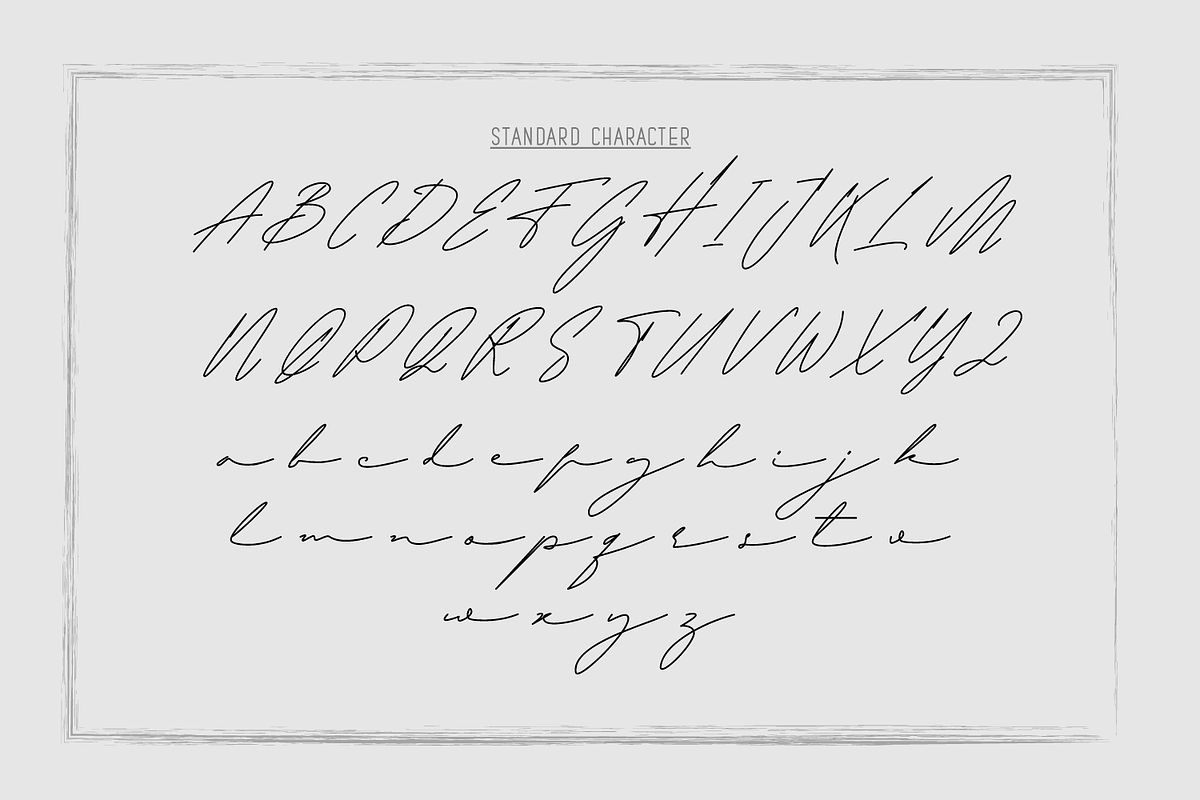 STANDARD CHARACTER
ABCDEFGHIJKLM
NOPQRSTUVWXYZ
abcdefghijk
lmnopqrstv
wxyz